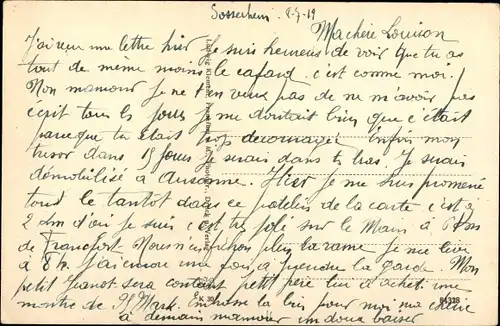 Sossenheim 8-7-19
Ma chérie Louison
J'ai reçu une lettre hier je suis heureux de voir que tu as
tout de même moins le cafard. c'est comme moi.
Mon mamour je ne t'en veux pas de ne m'avoir pas
écrit tous les jours je me doutait bien que c'était
parce que tu était trop decouragée Enfin mon
tresor dans 15 jours je serais dans tes bras. Je serais
démobilisé a Auxonne. Hier je me suis promené
tout le tantôt dans ce patelin de la carte c'est à
2 km d'ou je suis c'est très joli sur le Main à 8 Kms
de Francfort Nous n'en fichons plus la rame je me lève
à 8h. J'ai encore une fois à prendre la garde. Mon
petit Jeanot sera content petit père lui a acheté une
montre de Mark. Embrasse le bien pour moi ma chérie
à demain mamour un doux baiser
K 30
84318